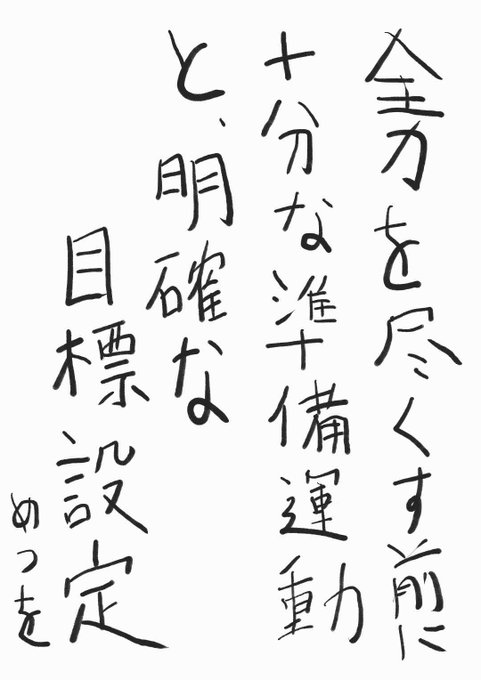 全力を尽くす前に
十分な準備運動
と、明確な
目標設定
めつを